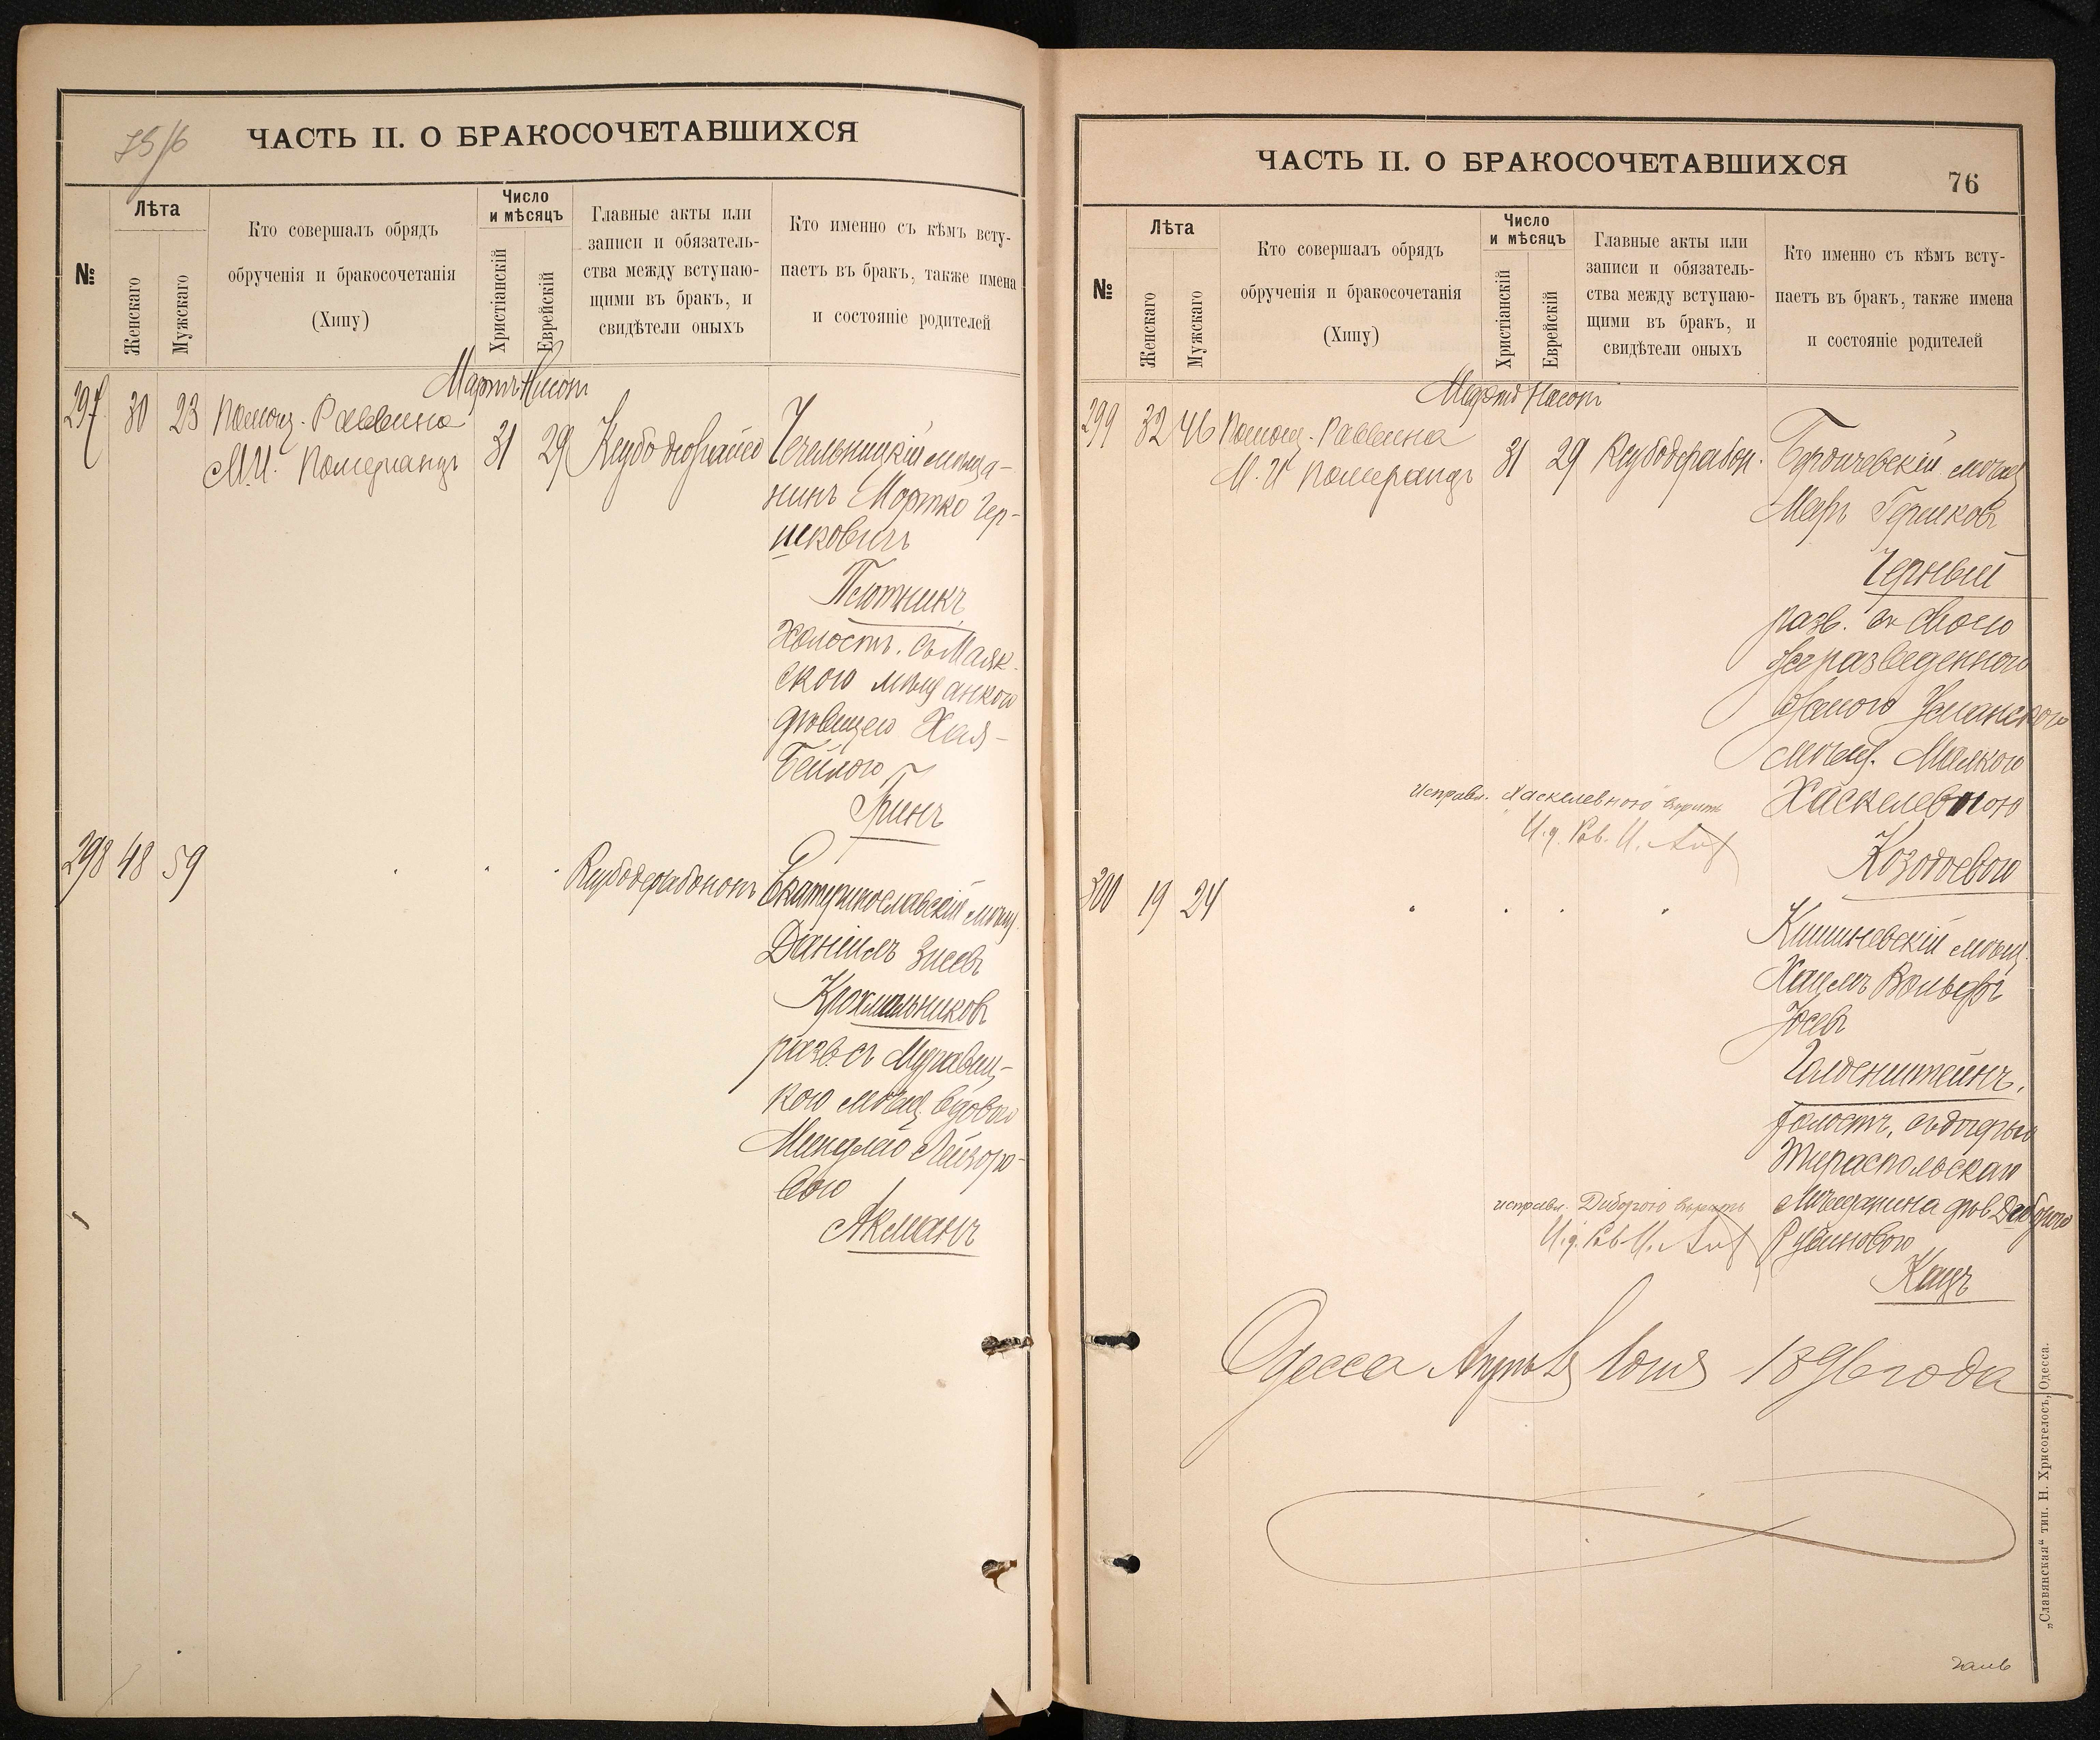 75/6
ЧАСТЬ II. О БРАКОСОЧЕТАВШИХСЯ
№
Лѣта
Женскаго
Мужскаго
Кто совершалъ обрядъ
обрученія и бракосочетанія
(Хипу)
Число
и мѣсяцъ
Христіанскій
Еврейскій
Главные акты или
записи и обязатель-
ства между вступаю-
щими въ бракъ, и
свидѣтели оныхъ
Кто именно съ кѣмъ всту-
паетъ въ бракъ, также имена
и состояніе родителей
Мартъ Нисонъ
297 30 23 Помощ. Раввина
М.И. Померанцъ
31 29
Чечельницкій мѣща-
нинъ Мортко Гер-
шковичъ
Плотникъ
Холостъ. съ Маяк-
скою мѣщанкою
дѣвицею Хая-
Бейлою
Гринъ
298 48 59
Екатеринославскій мѣщ.
Даніилъ Зисевъ
Крохмальниковъ
разв. съ
кою мѣщ. вдовою
Лейзоро-
вою
Акманъ
ЧАСТЬ II. О БРАКОСОЧЕТАВШИХСЯ
76
№
Лѣта
Женскаго
Мужскаго
Кто совершалъ обрядъ
обрученія и бракосочетанія
(Хипу)
Число
и мѣсяцъ
Христіанскій
Еврейскій
Главные акты или
записи и обязатель-
ства между вступаю-
щими въ бракъ, и
свидѣтели оныхъ
Кто именно съ кѣмъ всту-
паетъ въ бракъ, также имена
и состояніе родителей
Мартъ Нисонъ
299 32 46 Помощ. Раввина
М. И. Померанцъ
31 29
Бердичевскій мѣщ.
Меръ Гершковъ
Черный
разв. съ своею
же разведенною
женою Уманскою
мѣщ. Малкою
Хаскелевною
Козодоевою
исправл. "Хаскелевною" вѣрить
И. д. Рав. И.
300 19 24
Кишиневскій мѣщ.
Хаимъ Вольфъ
Іосевъ
Голденштейнъ,
холостъ, съ дочерью
Тираспольскаго
мѣщанина дѣв. Деборою
Рувиновою
Кацъ
исправл. Деборою вѣрить
И. д. Рав. И.
Одесса Апрѣля 1896 года
„Славянская“ тип. Н. Хрисогелосъ, Одесса.